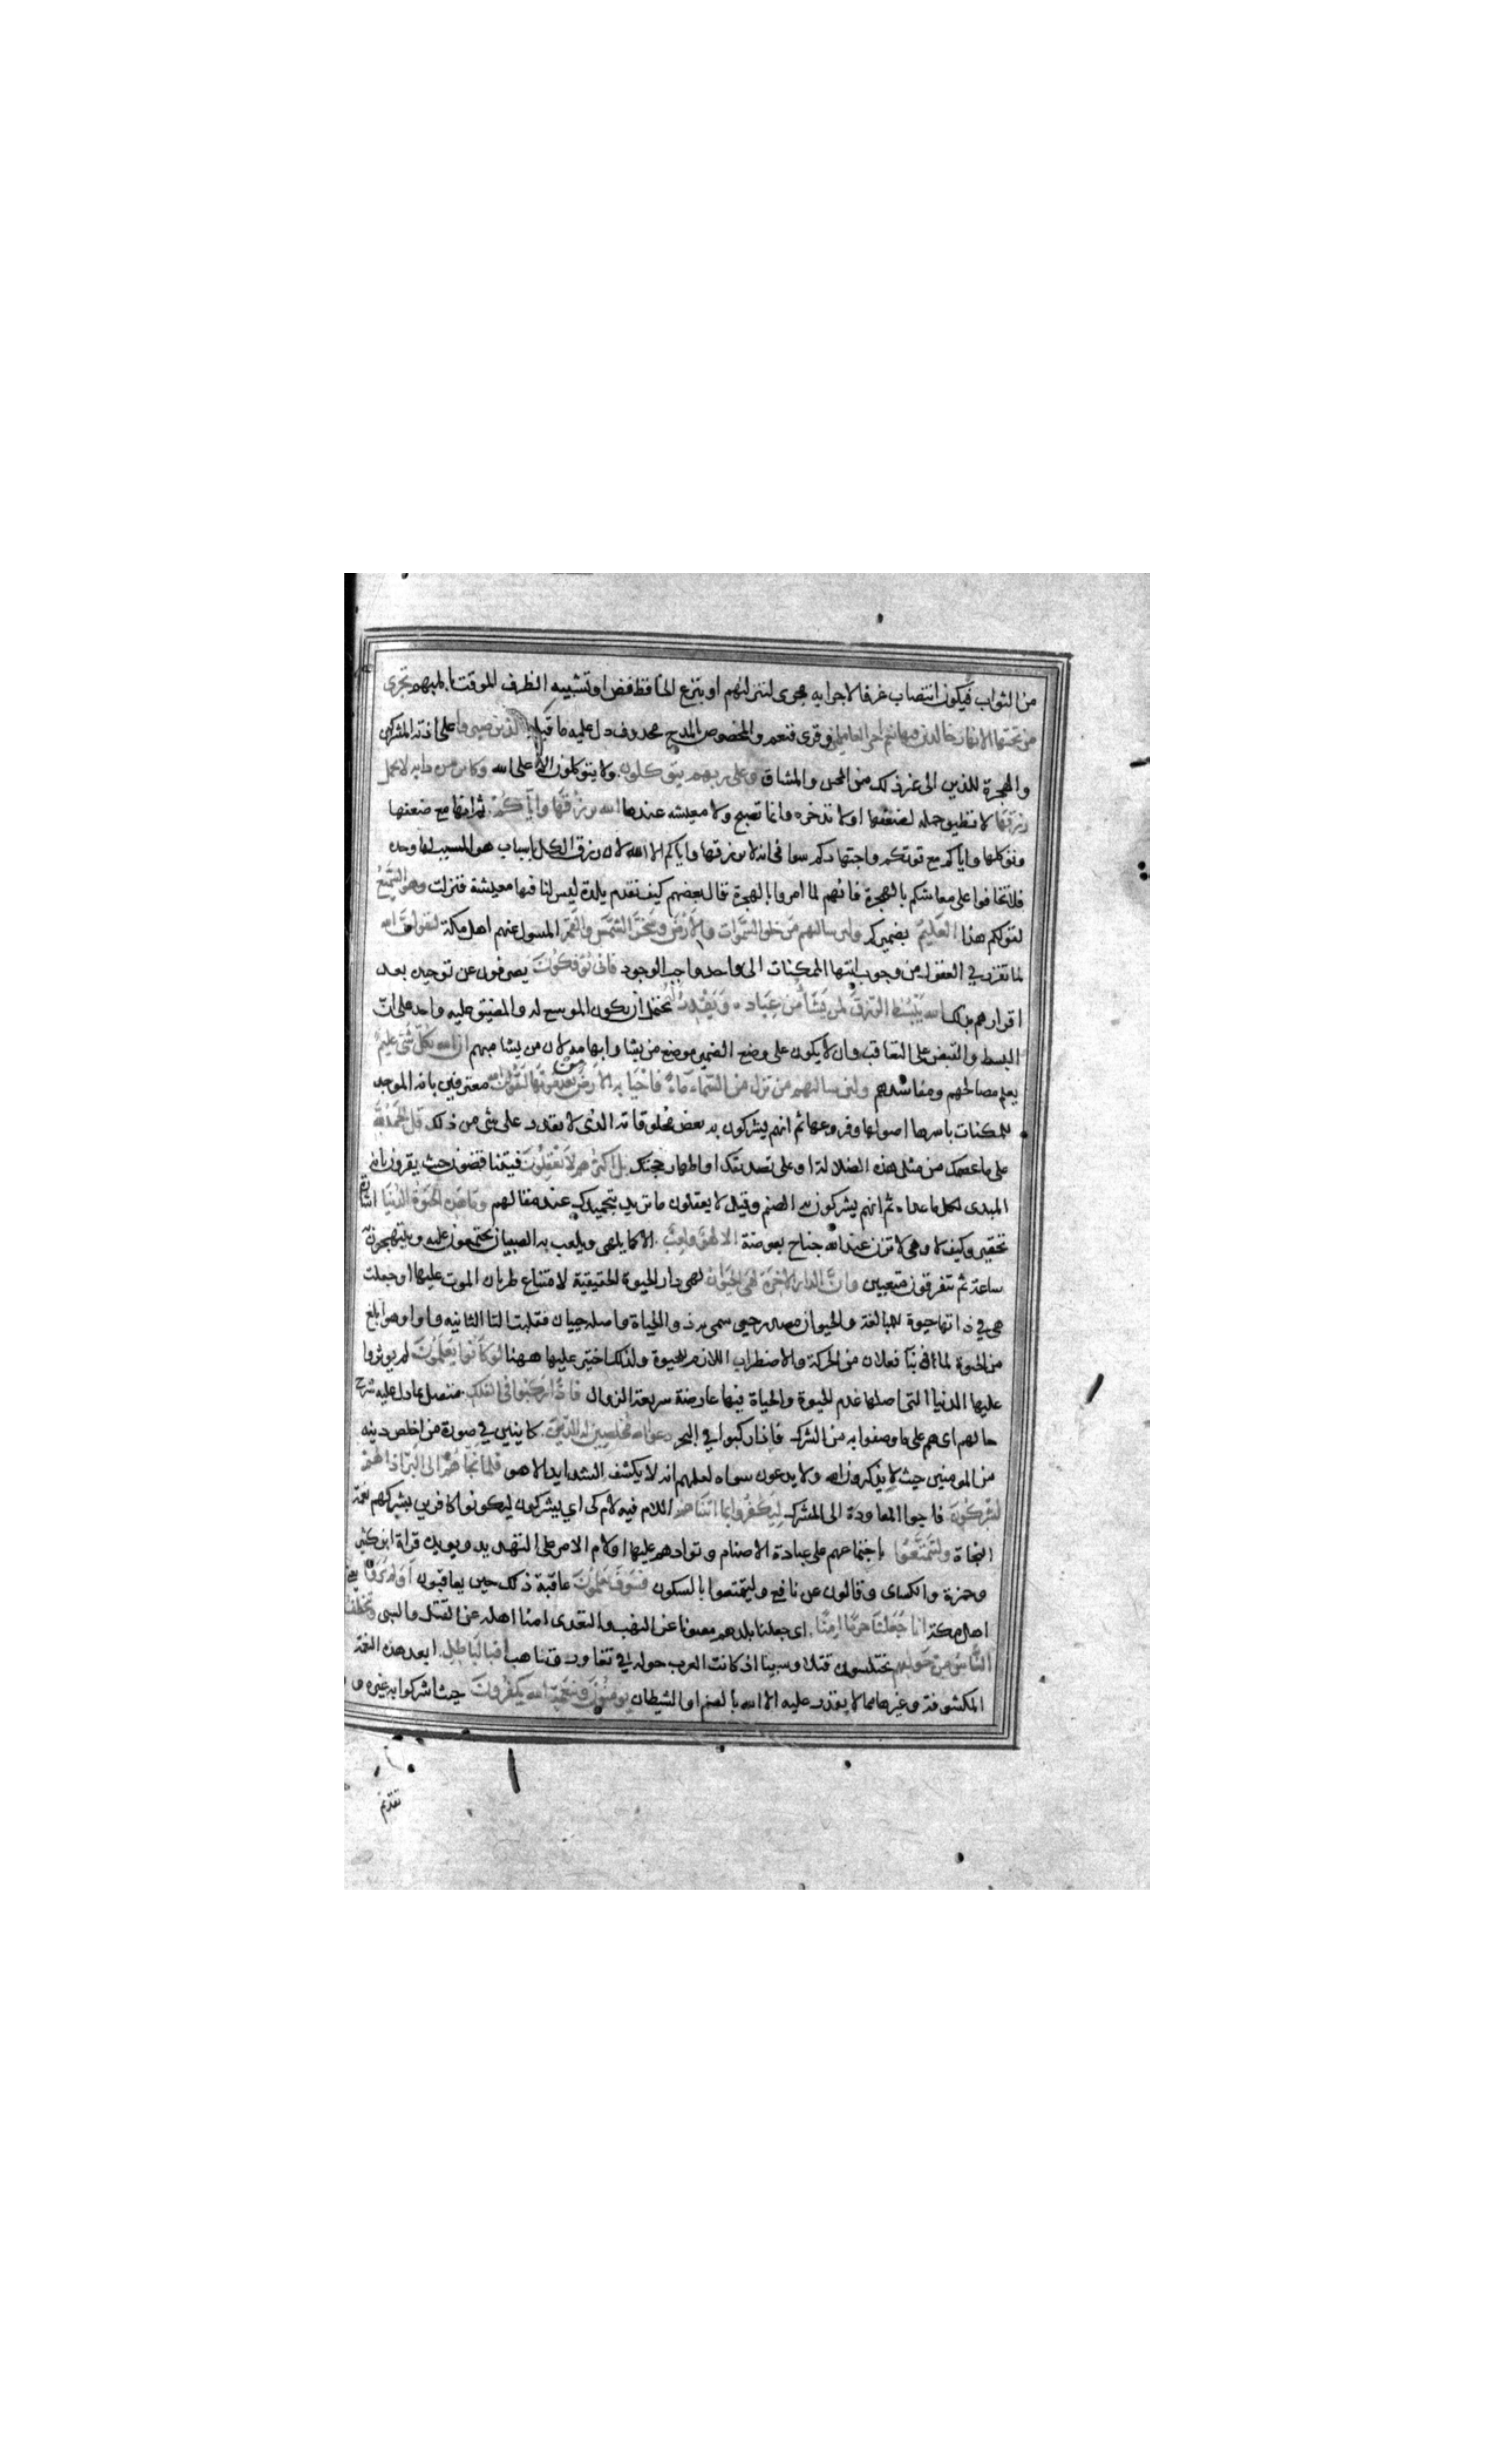 من الثواب فيكون انتصاب غرفا لاجرايه مجرى لننزلنهم او بنزع الخافظ فض او تشبيه الظرف الموقت بالمبهم تجرى
من تحتها الانهار خالدين فيها نعم اجر العاملين وقرى فنعم والمخصوص بالمدح محذوف دل عليه ما قبله الذين صبروا على اذية المشركين
والهجرة للدين الى غير ذلك من المحن والمشاق وعلى ربهم يتوكلون ولا يتوكلون الا على الله وكاين من دابة لا تحمل
رزقها لا تطيق حمله لضعفها او لا تدخره وانما تصبح ولا معيشه عندها الله يرزقها واياكم ثم انها مع ضعفها
وتوكلها واياكم مع قوتكم واجتهادكم سوا فى انه لا يرزقها واياكم الا الله لان رزق الكل باسباب هو المسبب لها وحده
فلا تخافوا على معاشكم بالهجرة فانهم لما امروا بالهجرة قال بعضهم كيف نقدم بلدة ليس لنا فيها معيشة فنزلت وهو السميع
لقولكم هذا العليم بضميركم ولين سالتهم من خلق السموات والارض وسخر الشمس والقمر المسول عنهم اهل مكة ليقولن الله
لما تقرر في العقول من وجوب انتها الممكنات الى واحد واجب الوجود فانى توفكون يصرفون عن توحيده بعد
اقرارهم بذلك الله يبسط الرزق لمن يشا من عباده ويقدر له يحتمل ان يكون الموسع له والمضيق عليه واحد على ان
البسط والقبض على التعاقب وان لا يكون على وضع الضمير موضع من يشا وابهامه لان من يشا مبهم ان الله بكل شى عليم
يعلم مصالحهم ومفاسدهم ولين سالتهم من نزل من السماء ماء فاحيا به الارض من بعد موتها ليقولن الله معترفين بانه الموجد
للممكنات باسرها اصولها وفروعها ثم انهم يشركون به بعض مخلوقاته الذى لا يقدر على شى من ذلك قل الحمد لله
على ما عصمك من مثل هذه الضلالة او على تصديقك او اظهار حجتك بل اكثرهم لا يعقلون فيتناقضون حيث يقرون بانه
المبدى لكل ما عداه ثم انهم يشركون به الصنم وقيل لا يعقلون ما تريد بتحميدك عند مقالهم وما هذه الحيوة الدنيا اشارة
تحقير وكيف لا وهى لا تزن عند الله جناح بعوضة الا لهو ولعب الا كما يلهى ويلعب به الصبيان يجتمعون عليه ويبتهجون به
ساعة ثم يتفرقون متعبين وان الدار الاخرة لهى الحيوان لهى دار الحيوة الحقيقية لامتناع طريان الموت عليها او جعلت
هى في ذاتها حيوة للمبالغة والحيوان مصدر حيى سمى به ذو الحياة واصله حييان فقلبت اليا الثانيه واوا وهو ابلغ
من الحيوة لما فى بنا فعلان من الحركة والاضطراب اللازم للحيوة ولذلك اختير عليها ههنا لو كانوا يعلمون لم يوثروا
عليها الدنيا التى اصلها عدم الحيوة والحياة فيها عارضة سريعة الزوال فاذا ركبوا فى الفلك متصل بما دل عليه شرح
حالهم اى هم على ما وصفوا به من الشرك فاذا ركبوا في البحر دعوا الله مخلصين له الدين كاينين في صورة من اخلص دينه
من المومنين حيث لا يذكرون الا الله ولا يدعون سواه لعلمهم انه لا يكشف الشدايد الا هو فلما نجاهم الى البر اذا هم
يشركون فاجوا المعاودة الى المشرك ليكفروا بما اتيناهم اللام فيه لام كى اي يشركون ليكونوا كافرين بشركهم نعمة
النجاة وليتمتعوا باجتماعهم على عبادة الاصنام وتوادهم عليها او لام الامر على التهديد ويويده قراة ابن كثير
وحمزة والكساى وقالون عن نافع وليتمتعوا بالسكون فسوف يعلمون عاقبة ذلك حين يعاقبون اولم يروا يعنى
اهل مكة انا جعلنا حرما امنا اى جعلنا بلدهم مصونا عن النهب والتعدى امنا اهله عن القتل والسبى ويتخطف
الناس من حولهم يختلسون قتلا وسبيا اذ كانت العرب حوله في تغاور وتناهب افبالباطل ابعد هذه النعمة
المكشوفة وغيرها مما لا يقدر عليه الا الله بالصنم او الشيطان يومنون وبنعمة الله يكفرون حيث اشركوا به غيره و
تقديم